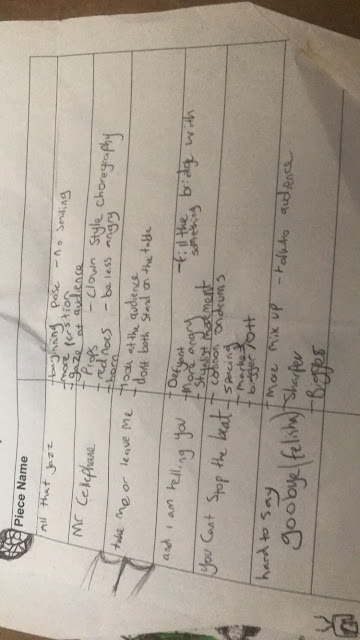 Piece Name
All that Jazz
- beginning pose - no smiling
- more
- gaze at audience
Mr Cellephane
- Props - clown style choreography
red noes - be less angry
horn
take me or leave me
- look at the audience
- dont both stand on the table
and i am telling you
- Defyant
- more angry - fill the bridge with
something
- Stylized movement
You Cant Stop the beat
- common on drums
- spacing
- marches
- bigger
hard to say
goodbye (felisha)
- more mix up - talk to audience
- Sharper
- Bigger